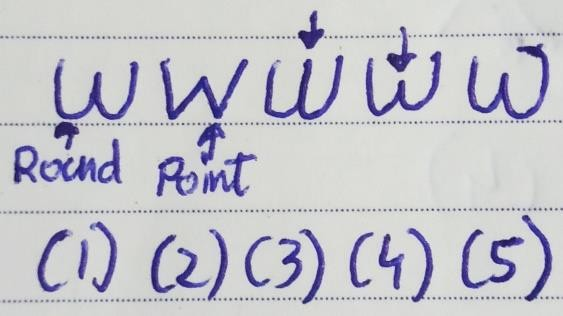 W W W W W
Round Point
(1) (2) (3) (4) (5)